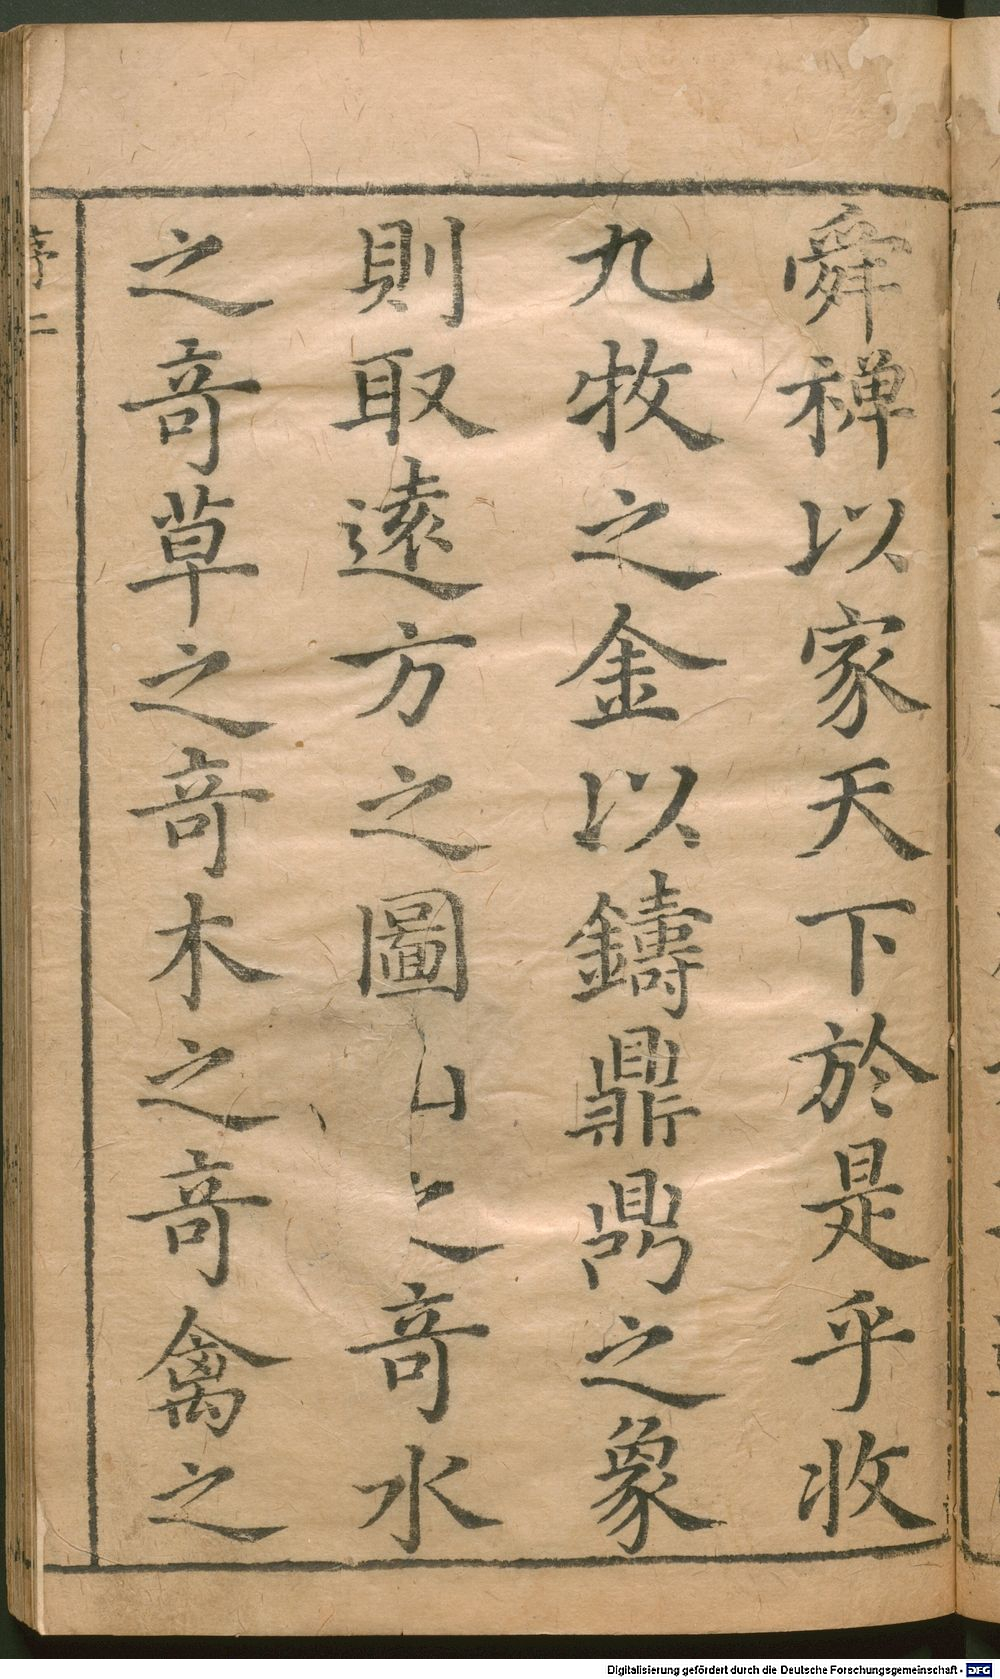 舜禅以家天下於是乎收
九牧之金以鑄鼎鼎之象
則取遠方之圖山之竒水
之竒草之竒木之竒禽之
序二
Digitalisierung gefördert durch die Deutsche Forschungsgemeinschaft - DFG